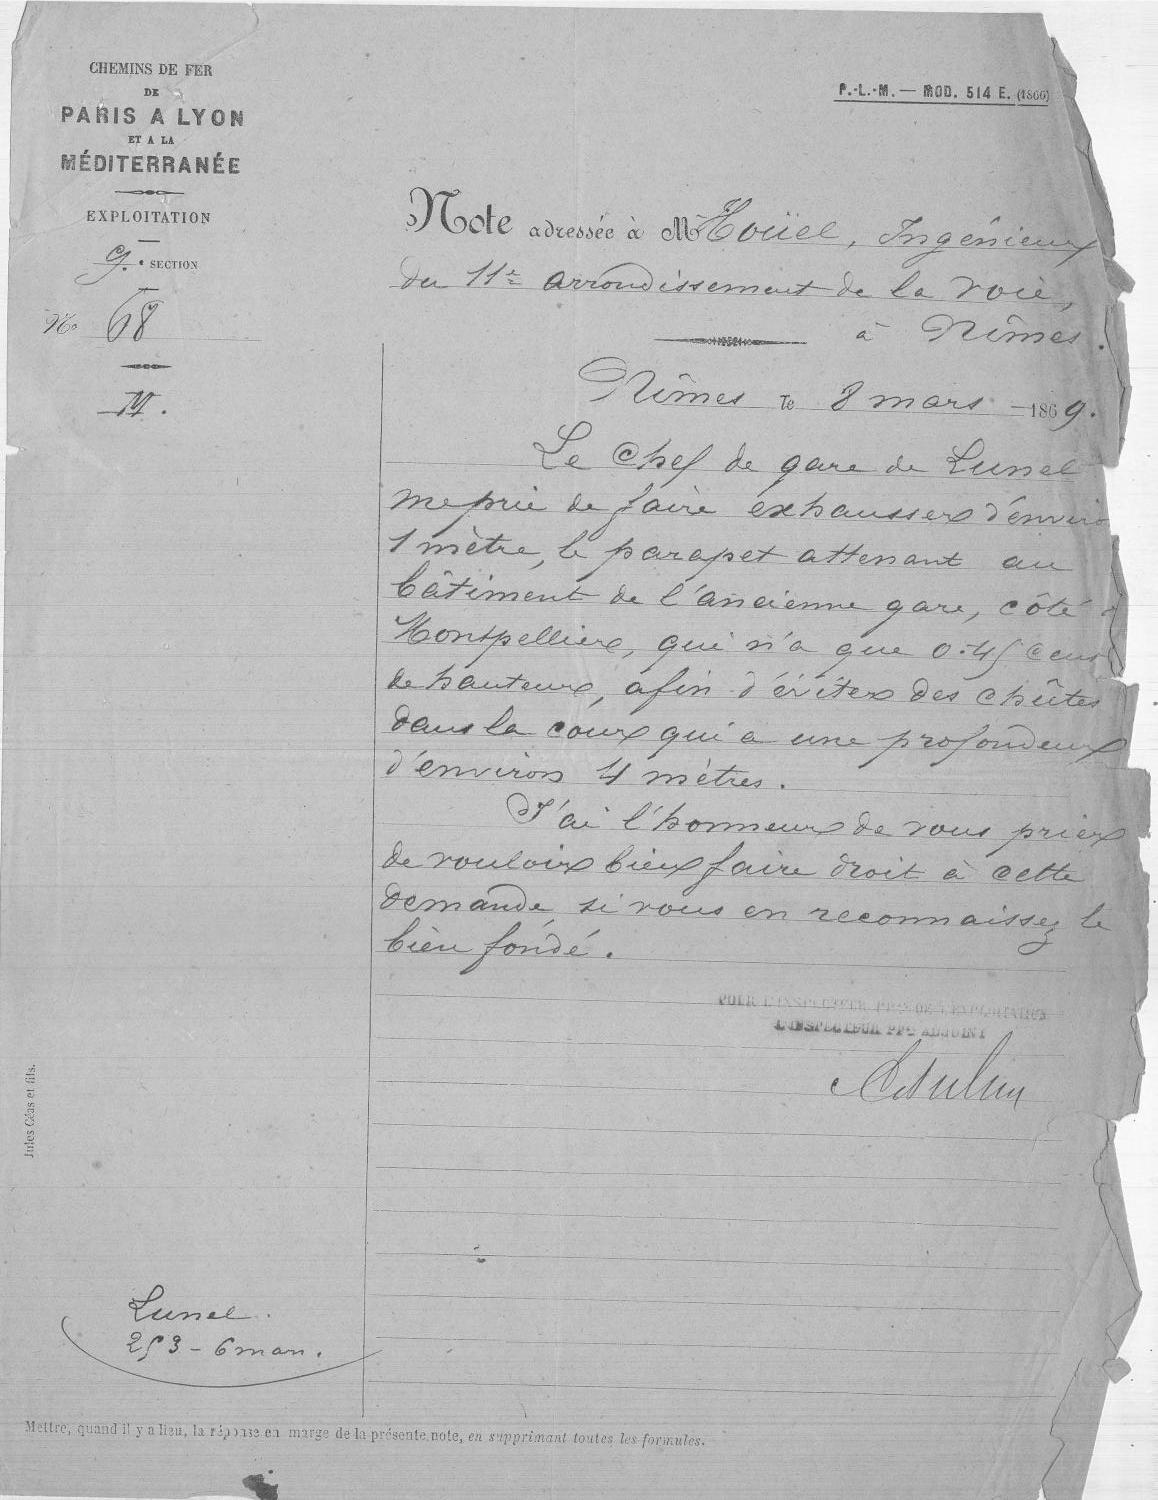 CHEMINS DE FER
DE
PARIS A LYON
ET A LA
MÉDITERRANÉE
EXPLOITATION
9. SECTION
No 68
M.
P.-L.-M. — MOD. 514 E. (1866)
Note adressée à Mr Hoüel, Ingénieur
du 11e arrondissement de la voie,
à Nîmes.
Nîmes le 8 mars 1869.
Le Chef de gare de Lunel
me prie de faire exhausser d'enviro
1 mètre, le parapet attenant au
bâtiment de l'ancienne gare, côté
Montpellier, qui n'a que 0.45 cent
de hauteur, afin d'éviter des chûtes
dans la cour qui a une profondeur
d'environ 4 mètres.
J'ai l'honneur de vous prier
de vouloir bien faire droit à cette
demande, si vous en reconnaissez le
bien fondé.
POUR L'INSPECTEUR PPAL DE L'EXPLOITATION
L'INSPECTEUR PPAL ADJOINT
Jules Céas et fils.
Lunel.
253 - 6 mars.
Mettre, quand il y a lieu, la réponse en marge de la présente note, en supprimant toutes les formules.